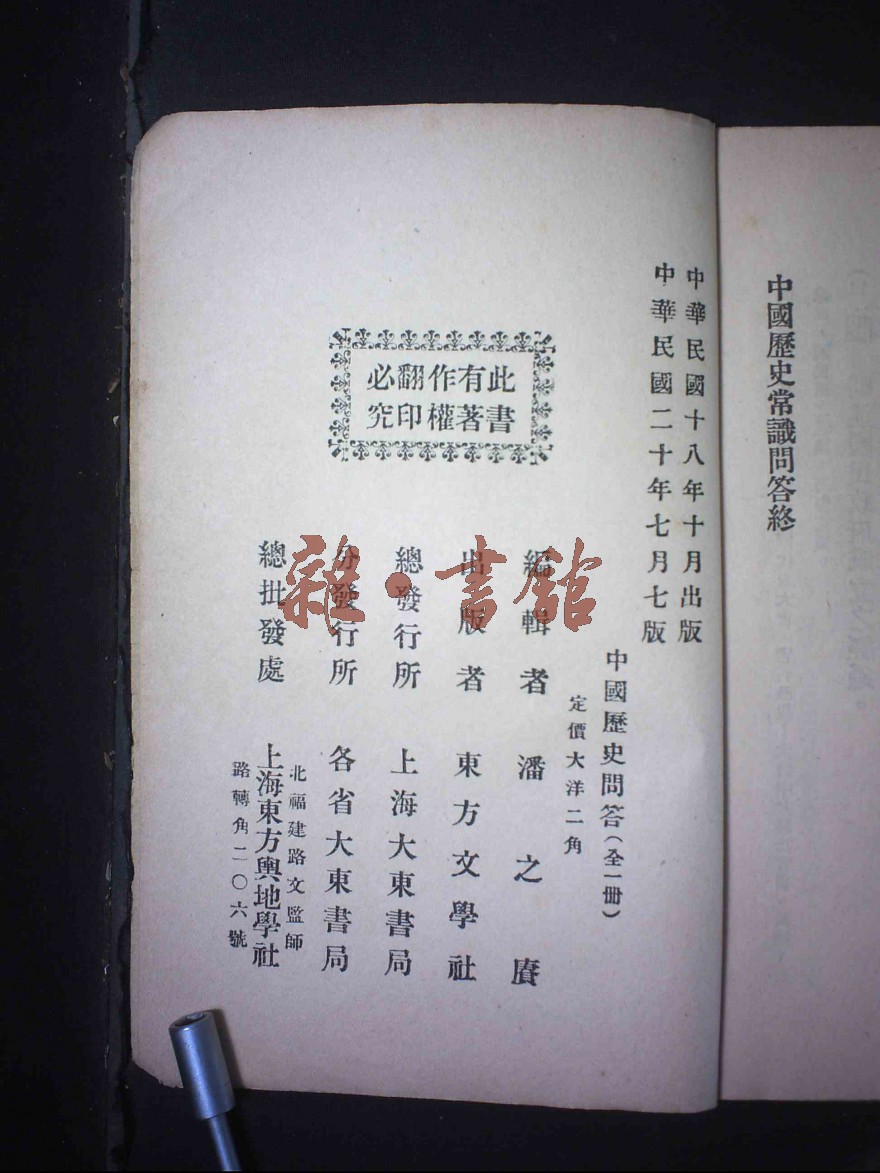 中國歷史常識問答終
中華民國十八年十月出版
中華民國二十年七月七版
中國歷史問答（全一冊）
定價大洋二角
編輯者 潘之賡
出版者 東方文學社
總發行所 上海大東書局
分發行所 各省大東書局
總批發處 上海東方輿地學社
北福建路文監師
路轉角二〇六號
此書
有著
作權
翻印
必究
雜·書館